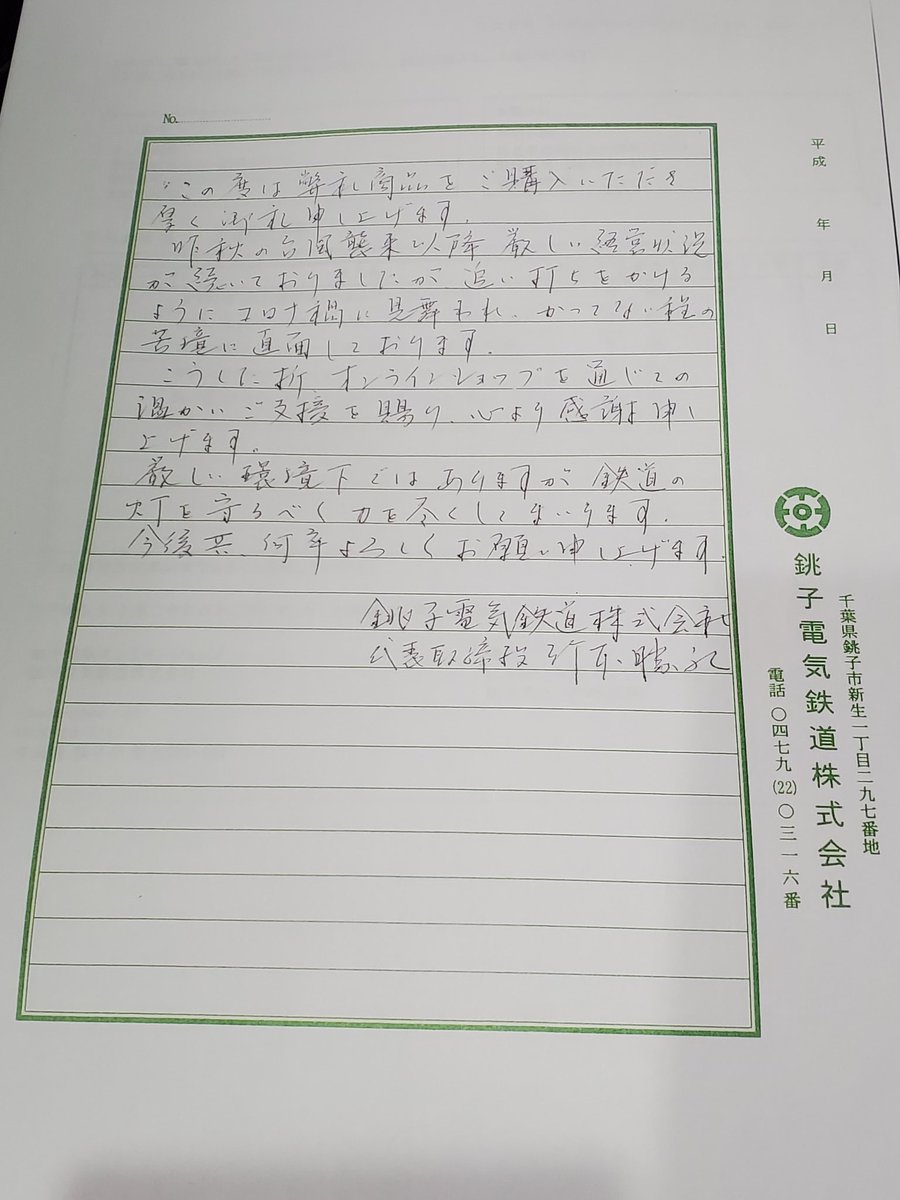 No.
この度は弊社商品をご購入いただき
厚く御礼申し上げます。
昨秋の台風襲来以降 厳しい経営状況
が続いておりましたが 追い打ちをかける
ように コロナ禍に見舞われ、かつてない程の
苦境に直面しております。
こうした折 オンラインショップを通じての
温かいご支援を賜り、心より感謝申し
上げます。
厳しい環境下ではありますが 鉄道の
灯を守るべく力を尽くしてまいります。
今後共、何卒よろしくお願い申し上げます。
銚子電気鉄道株式会社
代表取締役 竹本勝紀
平成 年 月 日
銚子電気鉄道株式会社
千葉県銚子市新生一丁目二九七番地
電話 〇四七九(22)〇三一六番